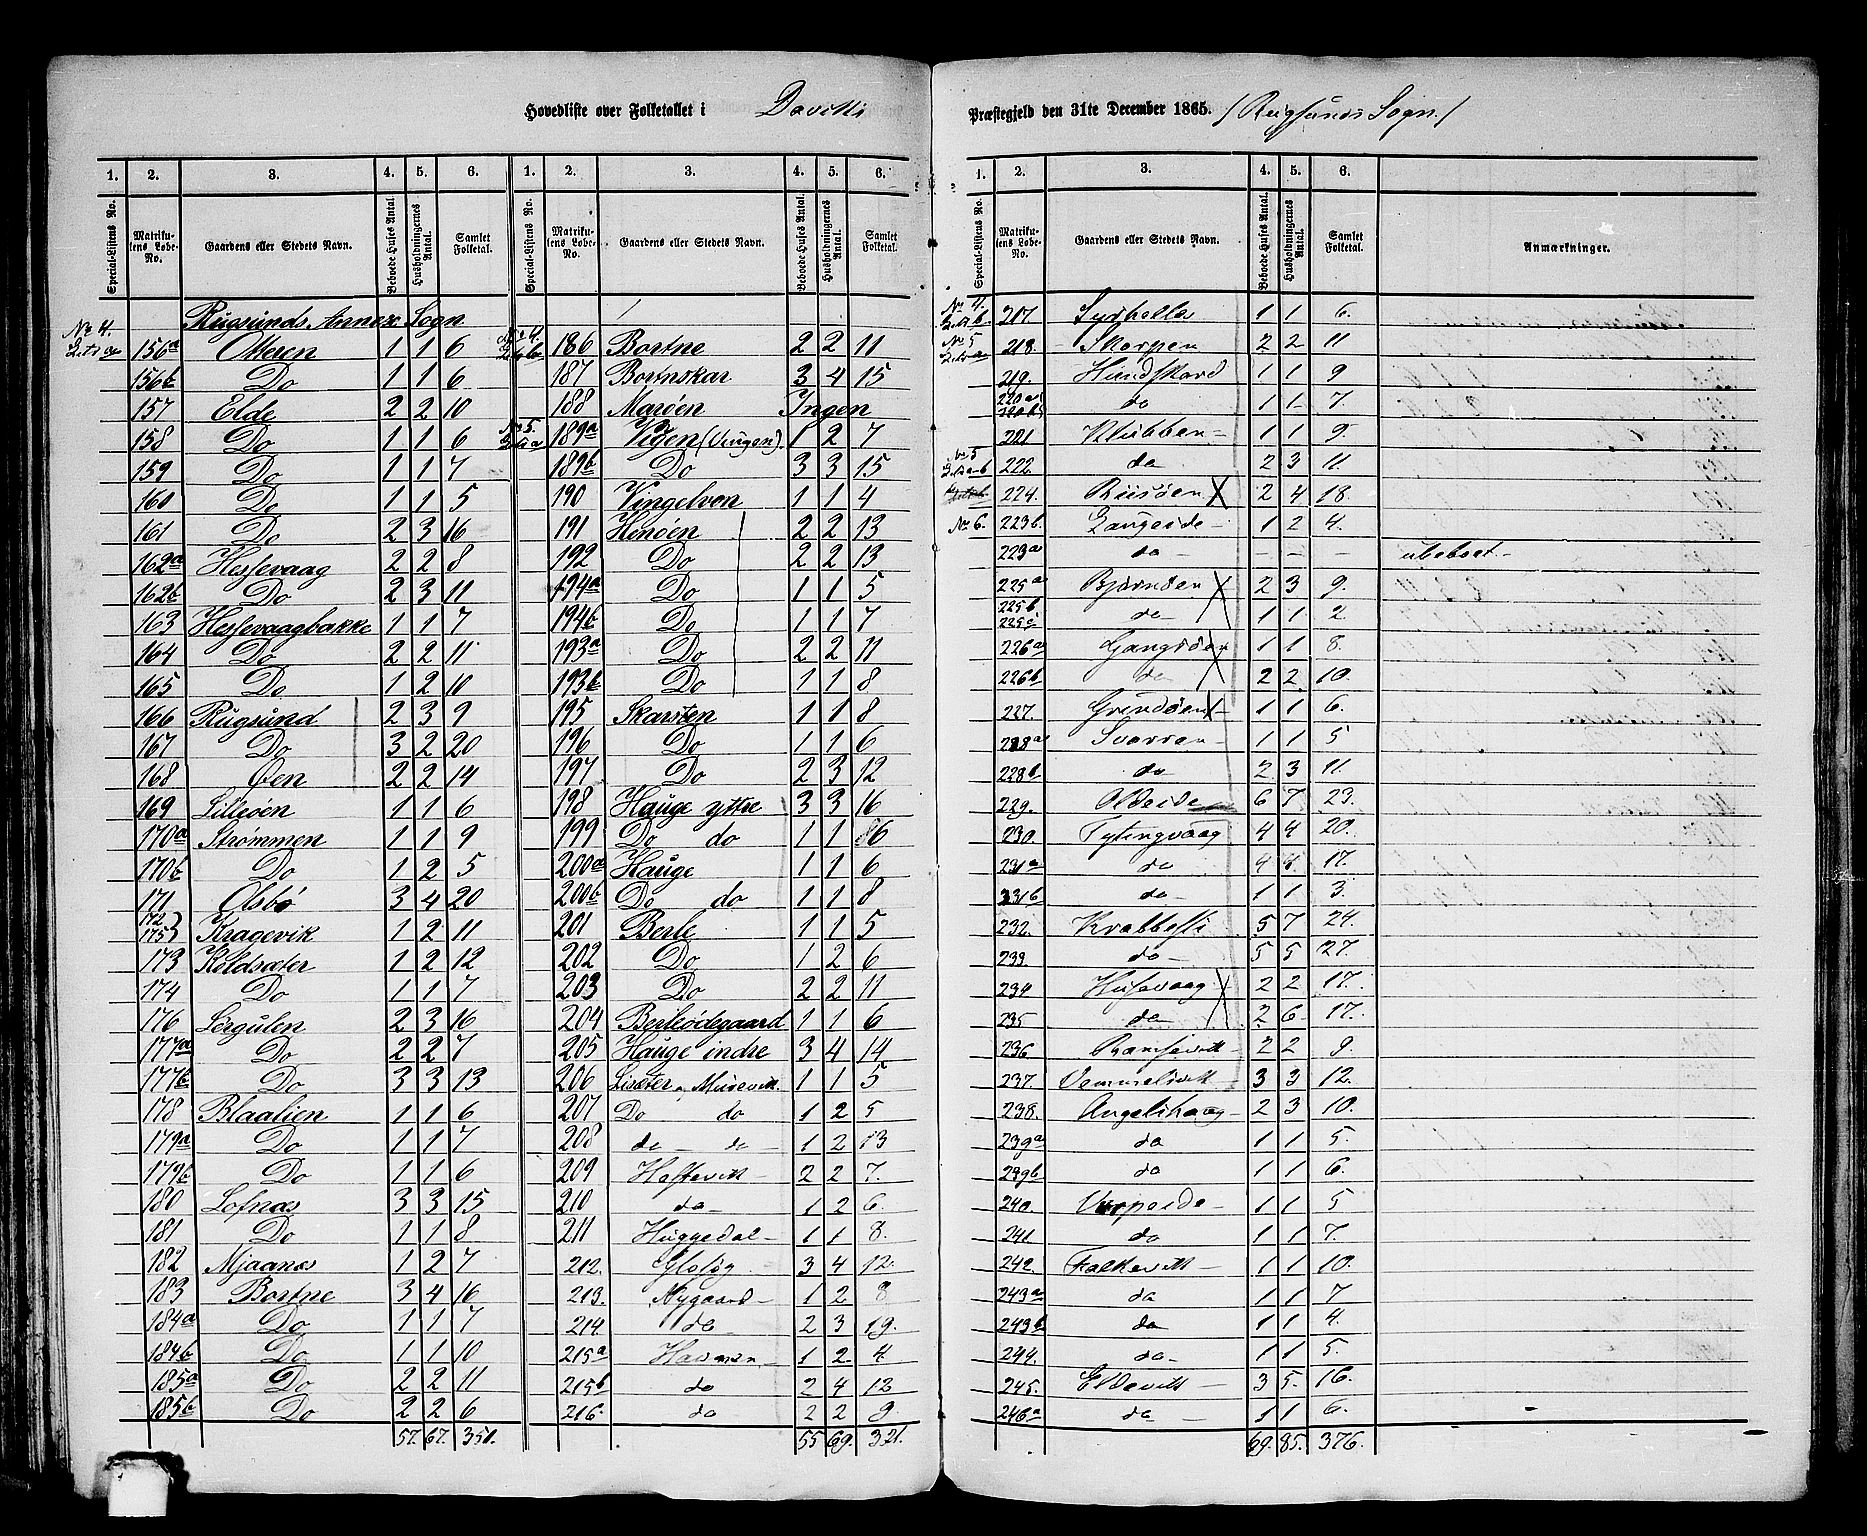 Hovedliste over Folketallet i Daviks Præstegjeld den 31te December 1865. (Rugsunds Sogn.)
1. 2. 3. 4. 5. 6. 1. 2. 3. 4. 5. 6.
Special-Listens No. Matrikulens Løbe-No. Gaardens eller Stedets Navn. Beboede Huses Antal. Husholdningernes Antal. Samlet Folketal. Special-Listens No. Matrikulens Løbe-No. Gaardens eller Stedets Navn. Beboede Huses Antal. Husholdningernes Antal. Samlet Folketal.
Rugsunds Annex Sogn
No 4. Litr a 156a Otteren 1 1 6
156b Do 1 1 6
157 Elde 2 2 10
158 Do 1 1 6
159 Do 1 1 7
160 Do 1 1 5
161 Do 2 3 16
162a Hessevaag 2 2 8
162b Do 2 3 11
163 Hessevaagbakke 1 1 7
164 Do 2 2 11
165 Do 1 2 10
166 Rugsund 2 3 9
167 Do 3 2 20
168 Øen 2 2 14
169 Lilleøen 1 1 6
170a Strømmen 1 1 9
170b Do 1 2 5
171 Olsbø 3 4 20
172 175 Kragevik 1 2 11
173 Koldsæter 1 2 12
174 Do 1 1 7
176 Sørgulen 2 3 16
177a Do 2 2 7
177b Do 3 3 13
178 Blaalien 1 1 6
179a Do 1 1 7
179b Do 1 1 6
180 Lofnæs 3 3 15
181 Do 1 1 8
182 Mjaanæs 1 2 7
183 Bortne 3 4 16
184a Do 1 1 7
184b Do 1 1 10
185a Do 2 2 11
185b Do 2 2 6
57. 67. 351.
No 4. Litr b 186 Bortne 2 2 11
187 Bortnskar 3 4 15
188 Marøen Ingen
No 5. Litr a 189a Vigen (Vingen). 1 2 7
189b Do 3 3 15
190 Vingelven 1 1 4
191 Henøen 2 2 13
192 Do 2 2 13
194a Do 1 1 5
194b Do 1 1 7
193a Do 2 2 11
193b Do 1 1 8
195 Skarsten 1 1 8
196 Do 1 1 6
197 Do 2 3 12
198 Hauge yttre 3 3 16
199 Do do 1 1 6
200a Hauge 1 1 6
200b Do do 1 1 8
201 Berle 1 1 5
202 Do 1 2 6
203 Do 2 2 11
204 Berleødegaard 1 1 6
205 Hauge indre 3 4 14
206 Lisæter o Murevik. 1 1 5
207 Do do 1 2 5
208 do do 1 2 13
209 Hestevik 2 2 7.
210 do 1 2 6.
211 Huggedal 1 1 8.
212. Glosøg 3 4 12.
213. Nygaard 1 2 8
214. do 2 3 19.
215a Havnen 1 2. 4
215b do 2 4 12
216. do 2 2 9
55 69. 321.
1. 2. 3. 4. 5. 6.
Special-Listens No. Matrikulens Løbe-No. Gaardens eller Stedets Navn. Beboede Huses Antal. Husholdningernes Antal. Samlet Folketal. Anmærkninger.
No 4. Litr b. 217 1 1 6.
No 5 Litr a 218. Skorpen 2 2 11
219. Hundskard 1 1 9
220a 220b do 1 1 7.
221 Klubben 1 1 9.
No 5 Litr b 222. do 2 3 11.
224. Risøen 2 4 18.
No 6. 223b. Langeide 1 2 4.
223a do - - - ubeboet
225a Bjørnøen 2 3 9.
225b 225c do 1 1 2.
226a Gangsøen 1 1 8.
226b do 2 2 10.
227. Grindøen 1 1 6.
228a Svarren 1 1 5
228b do 2 3 11.
229. Oldeide 6 7 23.
230. Tytingvaag 4 4 20.
231a do 4 4. 17.
231b do 1 1 3.
232. Krabbesti 5 7 24.
233. do 5 5 27.
234 Husevaag 2 2 17.
235 do 2 6 17.
236 Ramsevik 2 2 9.
237. Vemmelsvik 3 3 12.
238. Angelshaug 2 3 10.
239a do 1 1 5.
239b do 1 1 6.
240. Varpeide 1 1 5
241 do 1 1 7.
242. Falkevik 1 1 10.
243a do 1 1 7
243b do 1 1 4.
244. do 1 1 5.
245. Eldevik 3 5. 16.
246a do 1 1 6.
69. 85. 376.